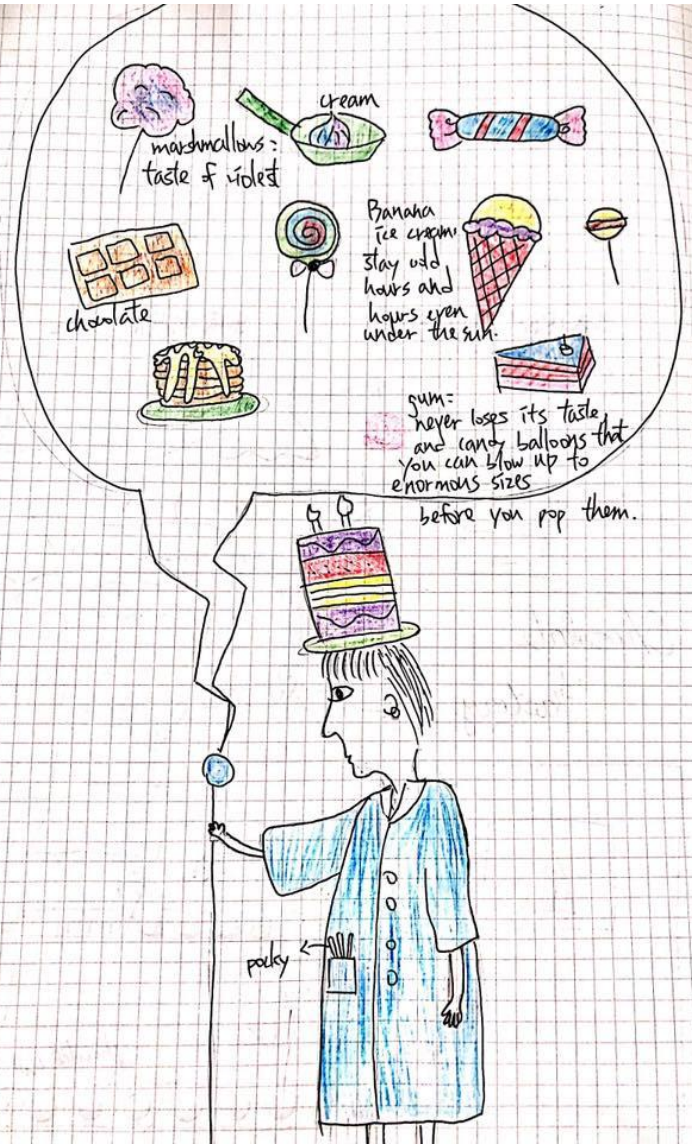 cream
marshmallows:
taste of violest
Banana
ice cream:
stay odd
hours and
hours even
under the sun.
chocolate
gum:
never loses its taste
and candy balloons that
you can blow up to
enormous sizes
before you pop them.
pocky